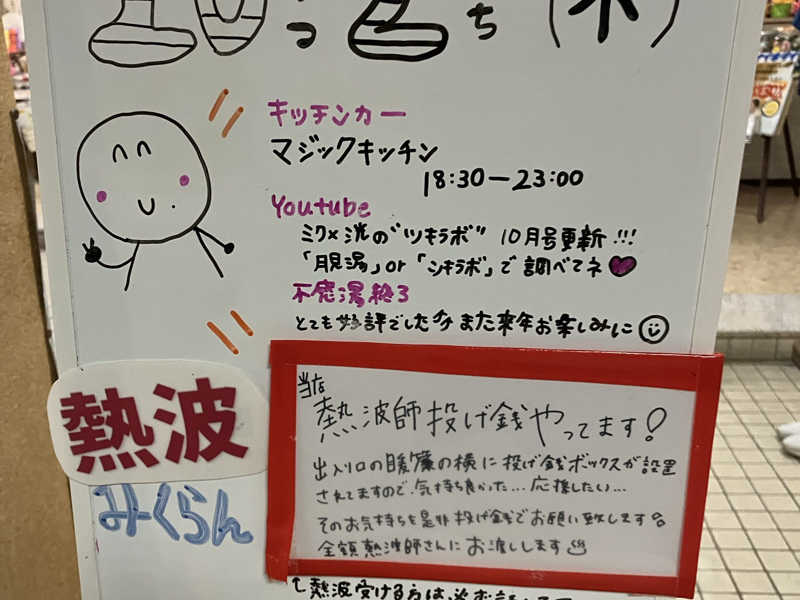 10つ2ち(木)
キッチンカー
マジックキッチン
18:30ー23:00
Youtube
ミク×洸の"ツキラボ" 10月号更新!!!
「月見湯」or「ツキラボ」で調べてネ
不感湯終了
とても好評でした
また来年お楽しみに
熱波
みくらん
当店
熱波師投げ銭やってます!
出入り口の暖簾の横に投げ銭ボックスが設置
されてますので、気持ち良かった…応援したい…
そのお気持ちを是非投げ銭でお願い致します
全額熱波師さんにお渡しします
熱波受ける方は